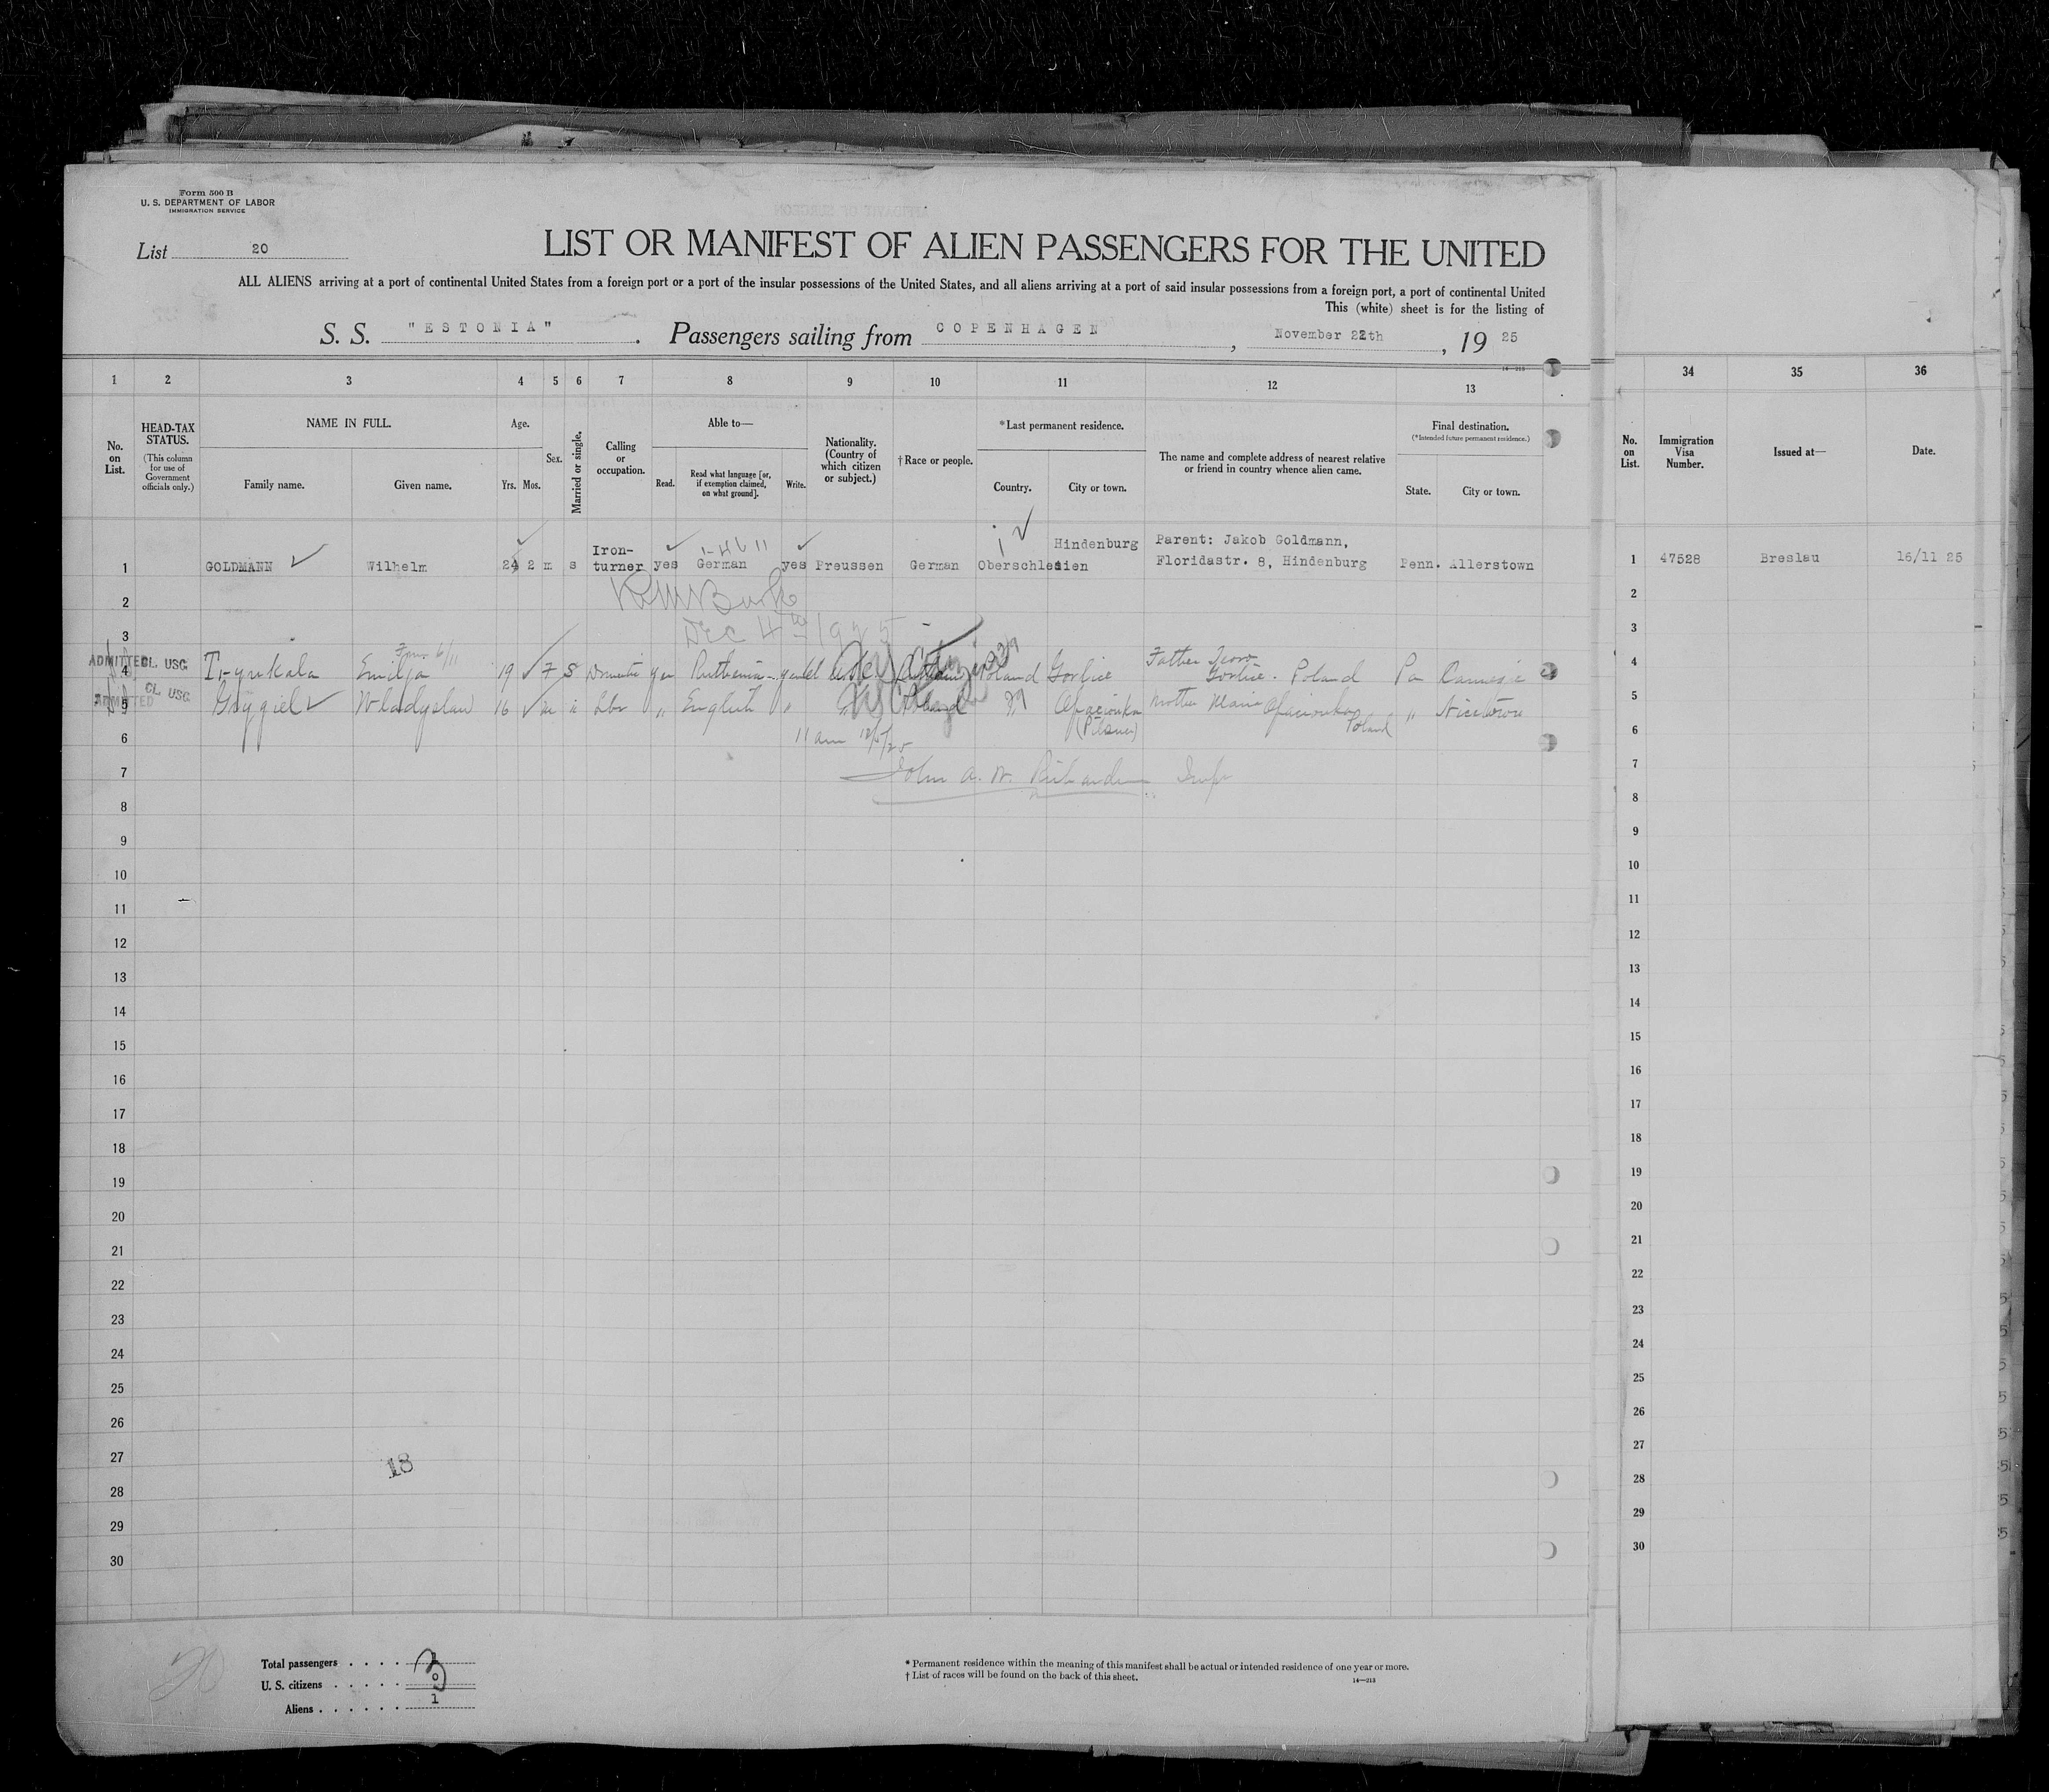 Form 500 B
U. S. DEPARTMENT OF LABOR
IMMIGRATION SERVICE
List 20
LIST OR MANIFEST OF ALIEN PASSENGERS FOR THE UNITED
ALL ALIENS arriving at a port of continental United States from a foreign port or a port of the insular possessions of the United States, and all aliens arriving at a port of said insular possessions from a foreign port, a port of continental United
This (white) sheet is for the listing of
S. S. "ESTONIA". Passengers sailing from COPENHAGEN, November 22th, 19 25
1 2 3 4 5 6 7 8 9 10 11 12 13 34 35 36
No. on List.
HEAD-TAX STATUS.
(This column for use of Government officials only.)
NAME IN FULL.
Family name. Given name.
Age.
Yrs. Mos.
Sex.
Married or single.
Calling or occupation.
Able to—
Read. Read what language [or, if exemption claimed, on what ground]. Write.
Nationality. (Country of which citizen or subject.)
† Race or people.
* Last permanent residence.
Country. City or town.
The name and complete address of nearest relative or friend in country whence alien came.
Final destination.
(*Intended future permanent residence.)
State. City or town.
No. on List.
Immigration Visa Number.
Issued at—
Date.
1 GOLDMANN Wilhelm 24 2 m s Iron-turner yes German yes Preussen German Oberschlesien Hindenburg Parent: Jakob Goldmann, Floridastr. 8, Hindenburg Penn. Allerstown 1 47528 Breslau 16/11 25
2
3 Dec 4th 1925
4 ADMITTED CL. USG Emilja 19 F S Domestic yes yes Poland Gorlice Father Gorlice. Poland Pa Carnegie
5 ADMITTED CL USG Wladyslaw 16 m Lbr " English " Mother Poland " Nicetown
6 11 am 12/5/25
7 John A. W. Insp
8
9
10
11
12
13
14
15
16
17
18
19
20
21
22
23
24
25
26
27 18
28
29
30
20
Total passengers . . . . 3
U. S. citizens . . . . . 0
Aliens . . . . . . 1
* Permanent residence within the meaning of this manifest shall be actual or intended residence of one year or more.
† List of races will be found on the back of this sheet.
14—213